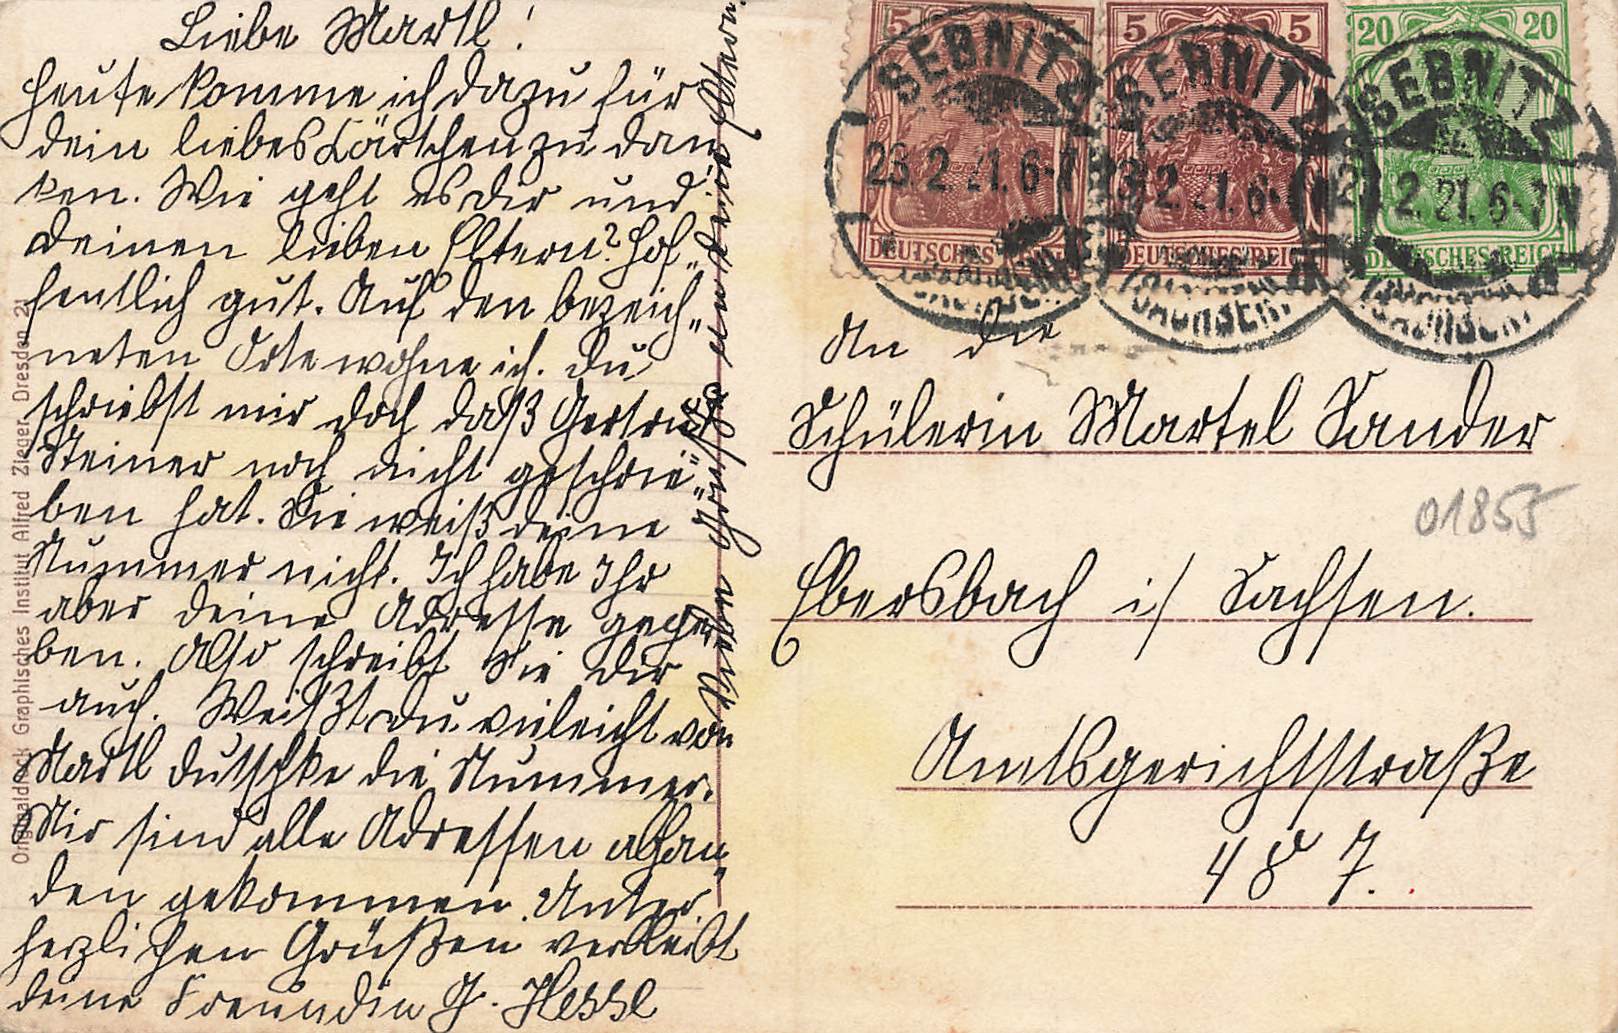 Liebe Martl!
Heute komme ich dazu für
dein liebes Kärtchen zu dan
ken. Wie geht es Dir und
Deinen lieben Eltern? Hof„
fentlich gut. Auf den bezeich„
neten Orte wohne ich. Du
schriebst mir doch daß Gertrud
Steiner noch nicht geschrie„
ben hat. Sie weiß deine
Nummer nicht. Ich habe Ihr
aber deine Adresse gege
ben. Also schreibt Sie Dir
auch. Weißt du vieleicht von
Martl Dutschke die Nummer.
Mir sind alle Adressen abhan„
den gekommen. Unter
herzlichen Grüßen verbleibt
deine Freundin G. Hesse
Grüße an deine Eltern.
Originaldruck Graphisches Institut Alfred Zieger Dresden 21
5 5
5 5
20 20
DEUTSCHES REICH
DEUTSCHES REICH
DEUTSCHES REICH
SEBNITZ
23.2.21.6-7N
SEBNITZ
2.21.6-
SEBNITZ
2.21.6-7N
An die
Schülerin Martel Sander
01855
Ebersbach i/ Sachsen.
Amtsgerichtsstraße
487.